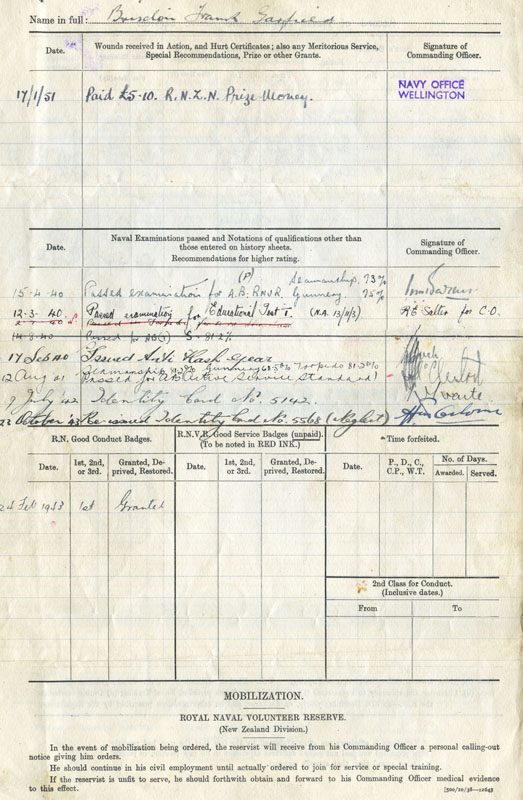 Name in full: Frank Garfield
Date.
Wounds received in Action, and Hurt Certificates; also any Meritorious Service,
Special Recommendations, Prize or other Grants.
Signature of
Commanding Officer.
17/1/51
Paid £5-10. R.N.Z.N. Prize Money.
NAVY OFFICE
WELLINGTON
Date.
Naval Examinations passed and Notations of qualifications other than
those entered on history sheets.
Recommendations for higher rating.
Signature of
Commanding Officer.
15-4-40 Passed examination for A.B. RNVR (P) Seamanship 73%
Gunnery 75%
12-3-40 Passed examination for Educational Test I. (N.A. 13/11/3) Salter for C.O.
14-3-40 Passed for
17 Feb 40 Issued with
12 Aug 41 Seamanship Gunnery Torpedo
Passed for AB (Active Service Standard)
9 July 42 Identity Card No. 5142.
23 October 43 Re-issued Identity Card No. 5568 (Neglect)
R.N. Good Conduct Badges.
R.N.V.R. Good Service Badges (unpaid).
(To be noted in RED INK.)
Time forfeited.
Date.
1st, 2nd,
or 3rd.
Granted, De-
prived, Restored.
Date.
1st, 2nd,
or 3rd.
Granted, De-
prived, Restored.
Date.
P., D., C.,
C.P., W.T.
No. of Days.
Awarded. Served.
24 Feb 1943 1st Granted
2nd Class for Conduct.
(Inclusive dates.)
From
To
MOBILIZATION.
ROYAL NAVAL VOLUNTEER RESERVE.
(New Zealand Division.)
In the event of mobilization being ordered, the reservist will receive from his Commanding Officer a personal calling-out
notice giving him orders.
He should continue in his civil employment until actually ordered to join for service or special training.
If the reservist is unfit to serve, he should forthwith obtain and forward to his Commanding Officer medical evidence
to this effect.
[500/10/38—12643